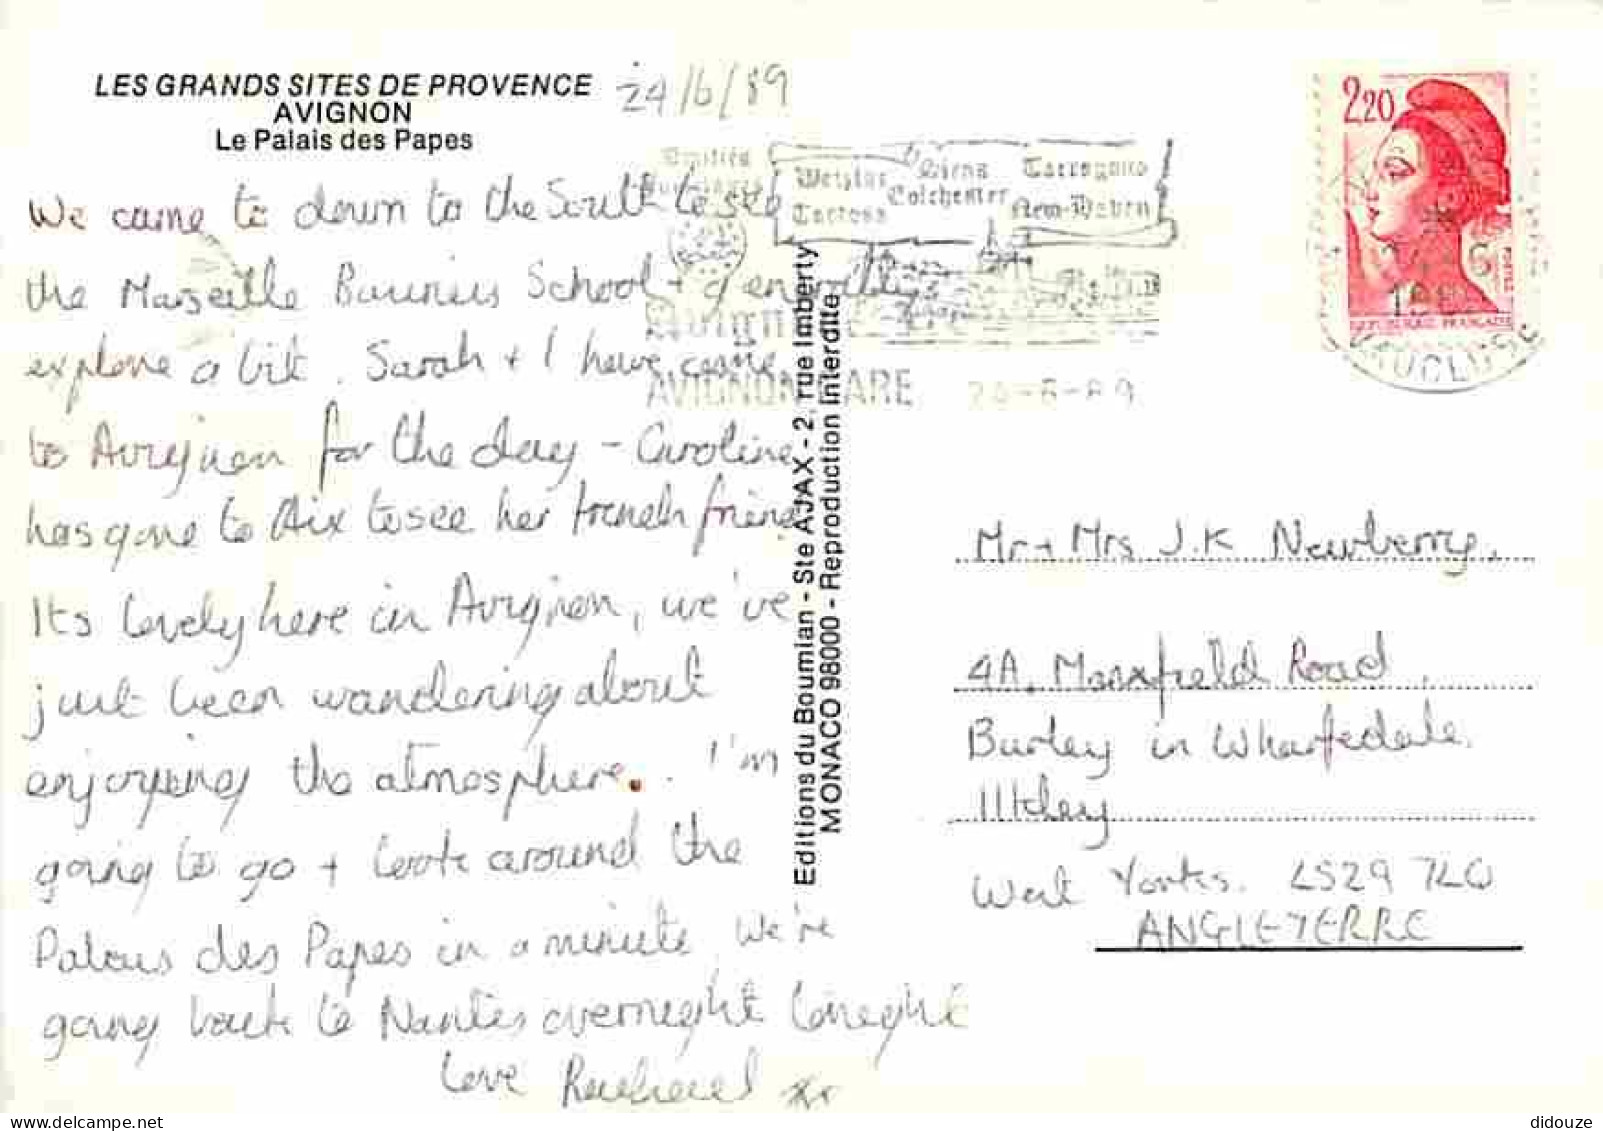 LES GRANDS SITES DE PROVENCE
AVIGNON
Le Palais des Papes
24/6/89
We came to down to the South to see
the Marseille Business School + generally
explore a bit. Sarah + I have come
to Avignon for the day - Caroline
has gone to Aix to see her french friend
Its lovely here in Avignon, we've
just been wandering about
enjoying the atmosphere. I'm
going to go + look around the
Palais des Papes in a minute We're
going back to Nantes overnight tonight
Love Racheal
Editions du Boumian - Ste AJAX - 2, rue Imberty
MONACO 98000 - Reproduction Interdite
Wetzlar
Siena
Tarragona
Colchester
Tortosa
New-Haven
AVIGNON GARE 24-6-89
2,20
REPUBLIQUE FRANÇAISE
VAUCLUSE
Mr + Mrs J.K Newberry,
4A, Manxfield Road,
Burley in Wharfedale,
Ilkley
West Yorks. LS29 7LQ
ANGLETERRE
didouze